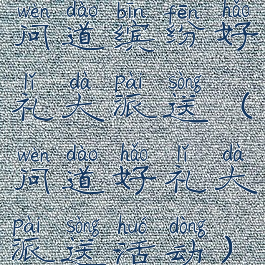 wèn dào bīn fēn hǎo
问道缤纷好
lǐ dà pài sòng
礼大派送（
wèn dào hǎo lǐ dà
问道好礼大
pài sòng huó dòng
派送活动）